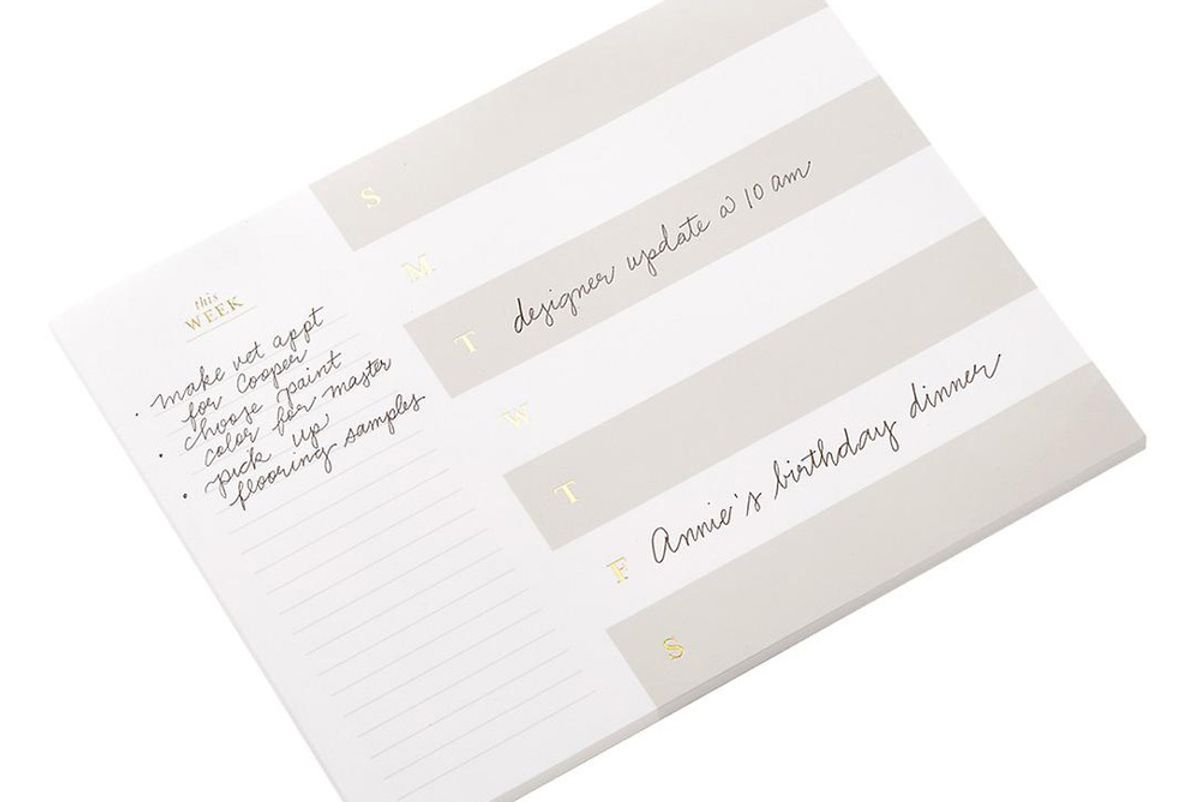 this
WEEK
• make vet appt
for Cooper
• choose paint
color for master
• pick up
flooring samples
S
M
T designer update @ 10 am
W
T
F Annie's birthday dinner
S